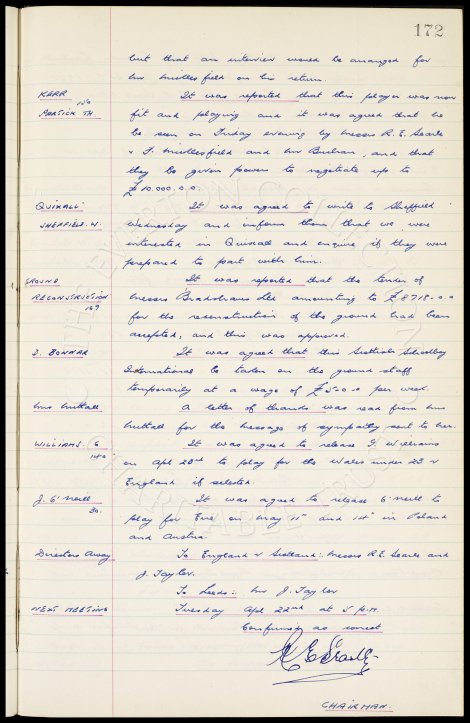 172
but that an interview would be arranged for
Mr Micklesfield on his return.
KERR It was reported that this player was now
150
PARTICK TH fit and playing and it was agreed that he
be seen on Tuesday evening by Messrs R.E. Searle
& F. Micklesfield and Mr Buchan, and that
they be given powers to negotiate up to
£10.000.0.0.
QUIXALL It was agreed to write to Sheffield
SHEFFIELD. W. Wednesday and inform them that we were
interested in Quixall and enquire if they were
prepared to part with him.
GROUND It was reported that the tender of
RECONSTRUCTION Messrs Bradshaws Ltd amounting to £8718-0-0
169 for the reconstruction of the ground had been
accepted, and this was approved.
D. BONNAR It was agreed that this Scottish Schoolboy
International be taken on the ground staff
temporarily at a wage of £5-0-0 per week.
Mrs Nuttall A letter of thanks was read from Mrs
Nuttall for the message of sympathy sent to her.
WILLIAMS. G It was agreed to release G Williams
on Apl 23rd to play for the Wales under 23 v
England if selected.
J. O'Neill It was agreed to release O'Neill to
30. play for Eire on May 11th and 14th in Poland
and Austria.
Directors Away To England v Scotland:- Messrs R.E. Searle and
J. Taylor.
To Leeds:- Mr J. Taylor
NEXT MEETING Tuesday Apl 22nd at 5 p.m.
Confirmed as correct
R E Searle
CHAIRMAN.